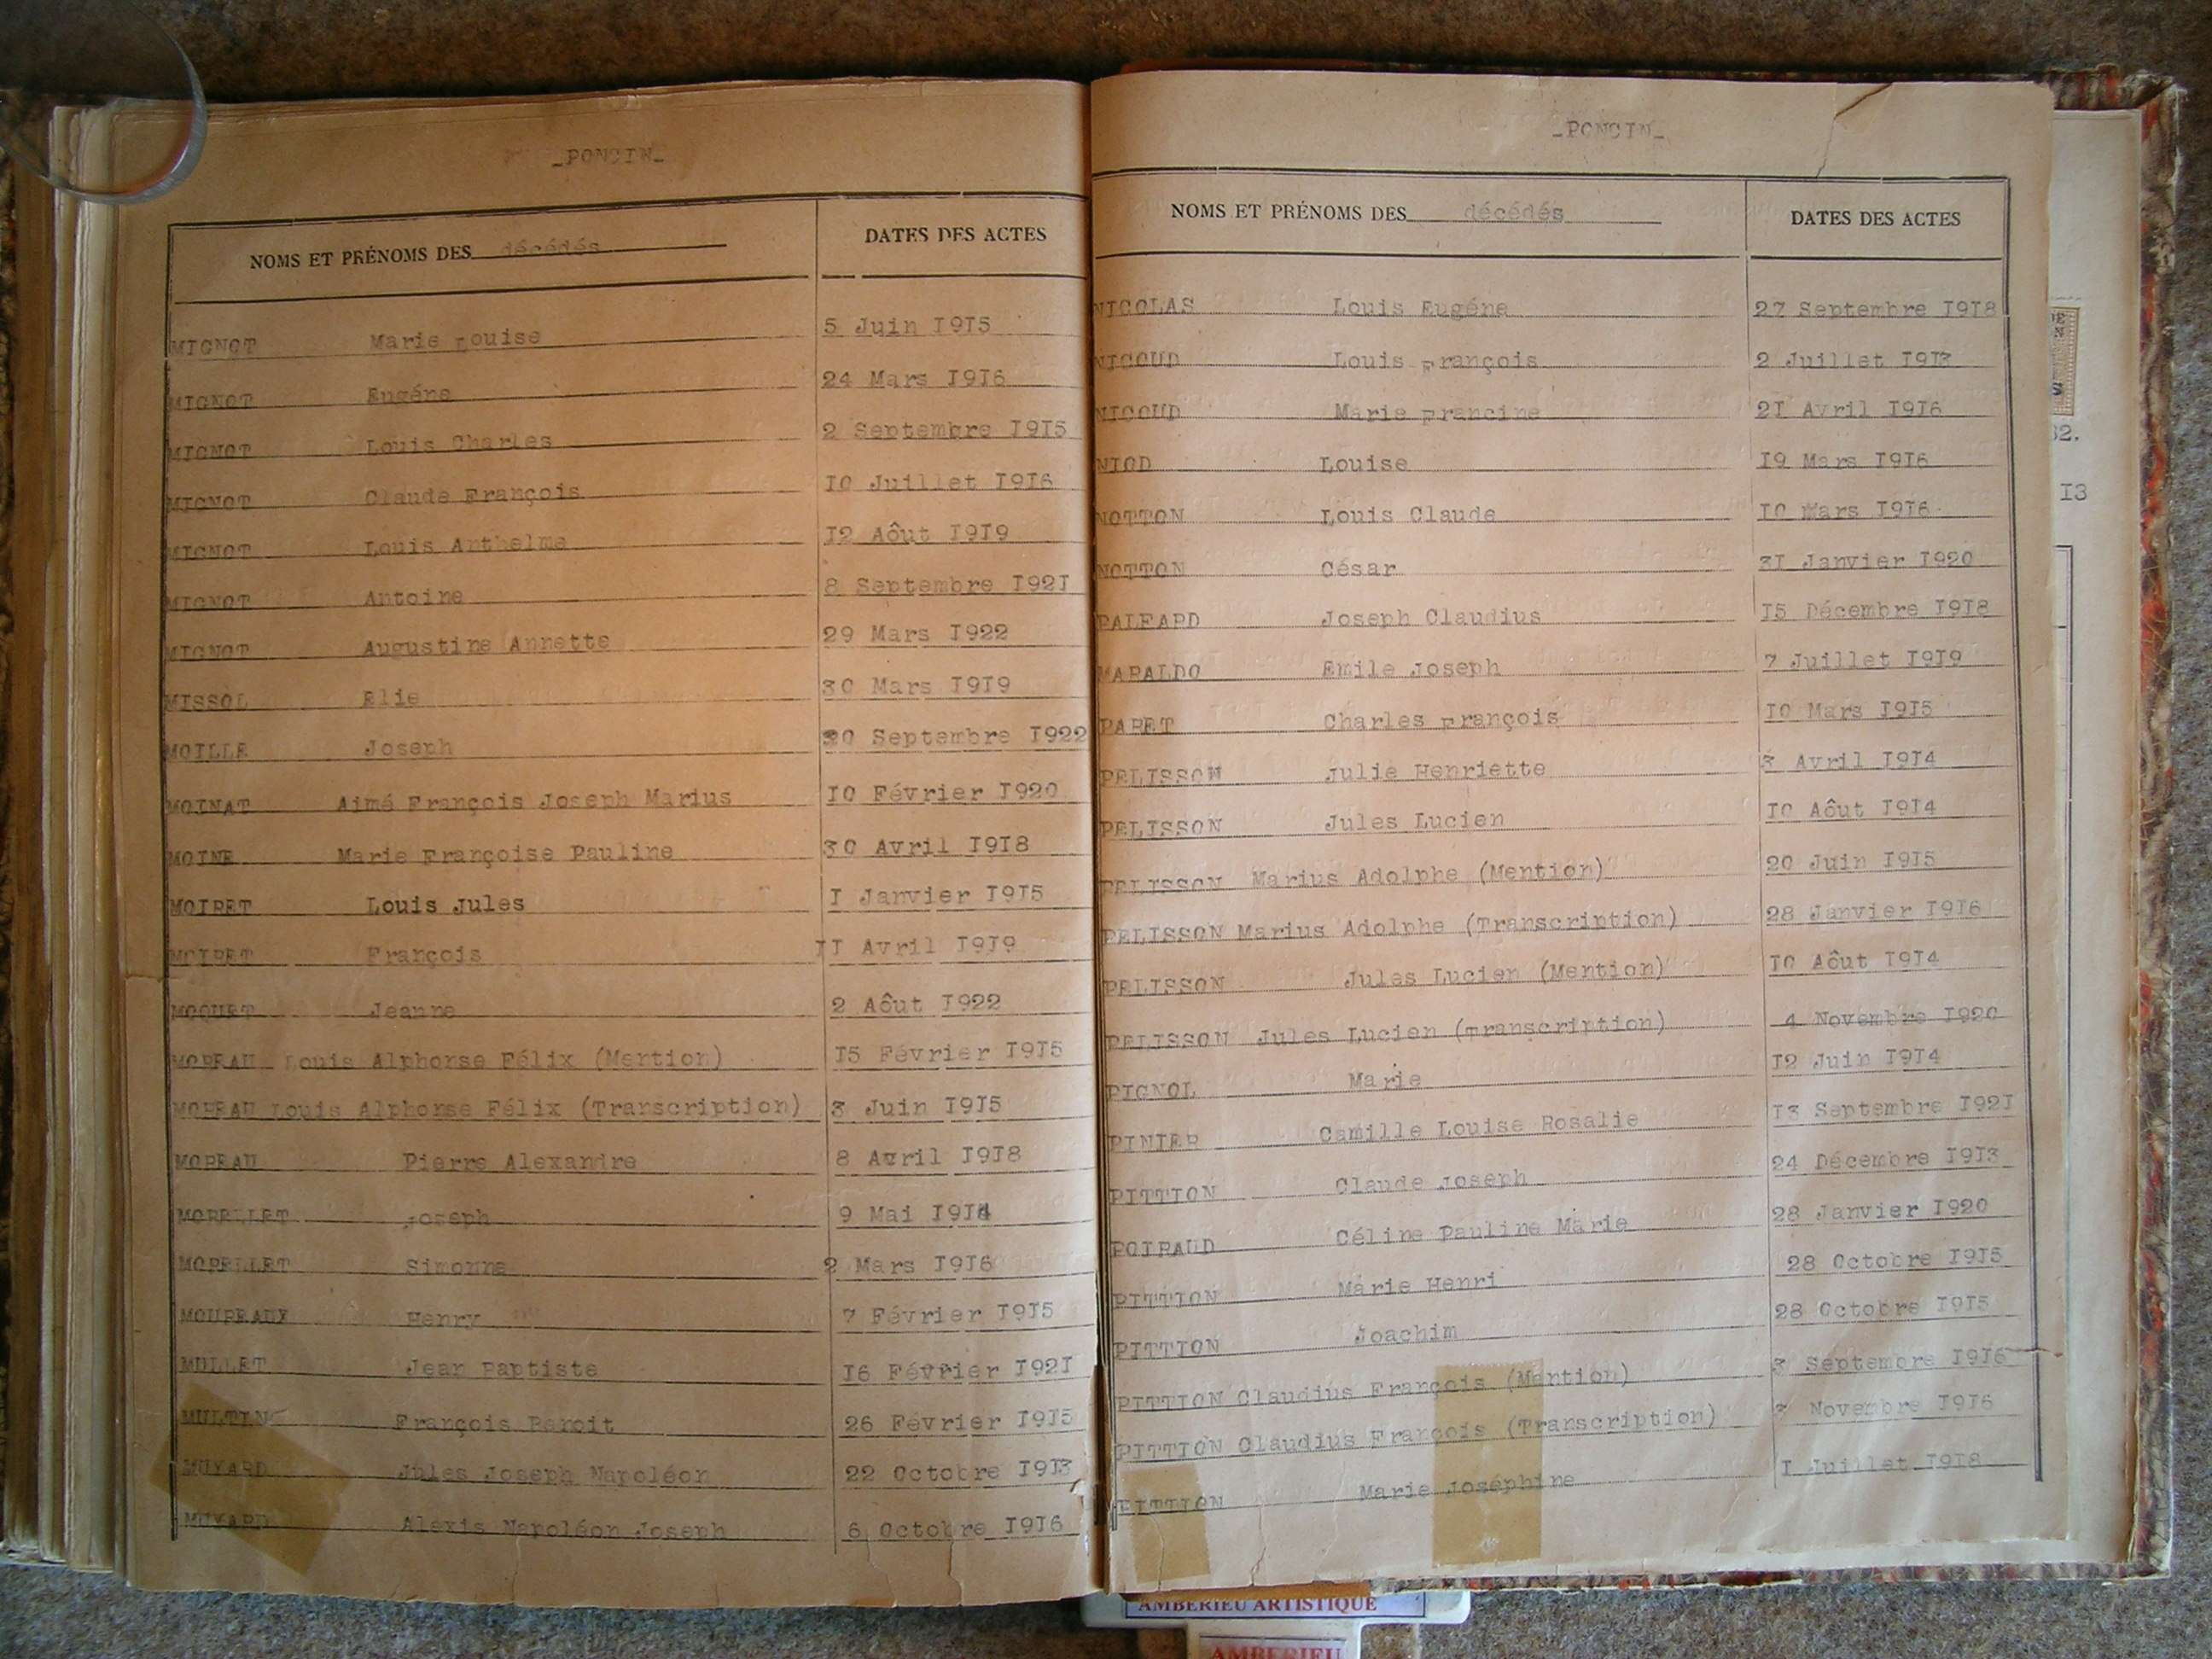 _PONCIN_
NOMS ET PRÉNOMS DES décédés DATES DES ACTES
MIGNOT Marie Louise 5 Juin I9I5
MIGNOT Eugéne 24 Mars I9I6
MIGNOT Louis Charles 2 Septembre I9I5
MIGNOT Claude François I0 Juillet I9I6
MIGNOT Louis Anthelme I2 Aôut I9I9
MIGNOT Antoine 8 Septembre I92I
MIGNOT Augustine Annette 29 Mars I922
MISSOL Elie 30 Mars I9I9
MOILLE Joseph 30 Septembre I922
MOINAT Aimé François Joseph Marius I0 Février I920
MOINE Marie Françoise Pauline 30 Avril I9I8
MOIRET Louis Jules I Janvier I9I5
MOIRET François II Avril I9I9
MOQUET Jeanne 2 Aôut I922
MOREAU Louis Alphonse Félix (Mention) I5 Février I9I5
MOREAU Louis Alphonse Félix (Transcription) 3 Juin I9I5
MOREAU Pierre Alexandre 8 Avril I9I8
MORELLET Joseph 9 Mai
MORELLET Simonne 2 Mars I9I6
MOUREAUX Henry 7 Février I9I5
MULLET Jean Baptiste I6 Février I92I
MULTIN François Benoit 26 Février I9I5
MUYARD Jules Joseph Napoléon 22 Octobre I9I3
MUYARD Alexis Napoléon Joseph 6 Octobre I9I6
_PONCIN_
NOMS ET PRÉNOMS DES décédés DATES DES ACTES
NICOLAS Louis Eugéne 27 Septembre I9I8
NICOUD Louis François 2 Juillet I9I3
NICOUD Marie Francine 2I Avril I9I6
NIOD Louise I9 Mars I9I6
NOTTON Louis Claude I0 Mars I9I6
NOTTON César 3I Janvier I920
PALEARD Joseph Claudius I5 Décembre I9I8
MARALDO Emile Joseph 7 Juillet I9I9
PARET Charles François I0 Mars I9I5
PELISSON Julie Henriette 3 Avril I9I4
PELISSON Jules Lucien I0 Aôut I9I4
PELISSON Marius Adolphe (Mention) 20 Juin I9I5
PELISSON Marius Adolphe (Transcription) 28 Janvier I9I6
PELISSON Jules Lucien (Mention) I0 Aôut I9I4
PELISSON Jules Lucien (Transcription) 4 Novembre I920
PIGNOL Marie I2 Juin I9I4
PINIER Camille Louise Rosalie I3 Septembre I92I
PITTION Claude Joseph 24 Décembre I9I3
POIRAUD Céline Pauline Marie 28 Janvier I920
PITTION Marie Henri 28 Octobre I9I5
PITTION Joachim 28 Octobre I9I5
PITTION Claudius François (Mention) 3 Septembre I9I6
PITTION Claudius François (Transcription) 3 Novembre I9I6
PITTION Marie Joséphine I Juillet I9I8
I3
AMBERIEU ARTISTIQUE
AMBERIEU